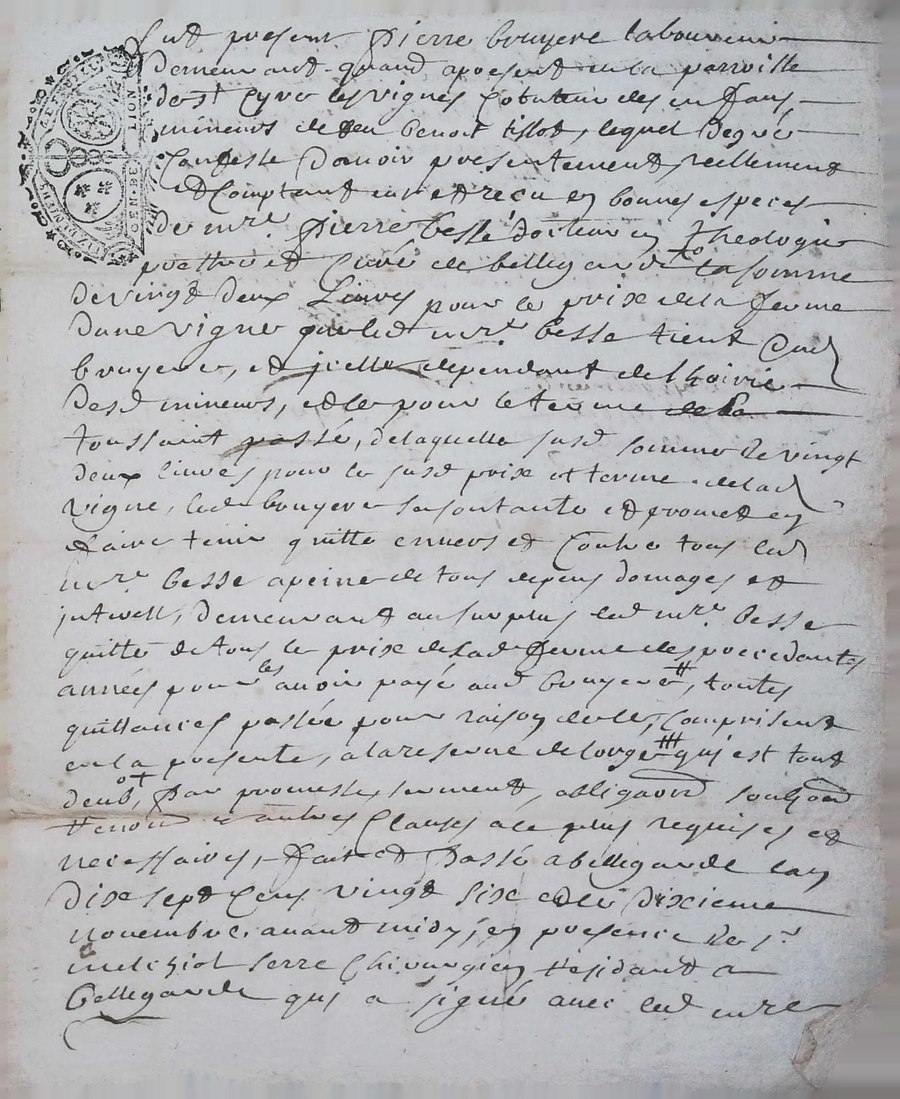 fut present Pierre bruyere laboureur
demeurant quand apresent en la parroisse
de st Cyre les vignes Cotuteur des enfans
mineurs de feu benoit tillot, lequel degré
Confesse d'avoir presentement reellement
et Comptant eu et recu en bonnes especes
de mre. Pierre bessé docteur en theologie
prestre et Curé de bellegarde la somme
de vingt deux Livres pour le prix de la ferme
dune vigne que led mre. besse tient dud
bruyere, et jcelle dependant de lhoirie
desd mineurs, et le pour le terme de la
toussaint passé, de laquelle susd somme de vingt
deux livres pour le susd prix et terme de lad
vigne, led bruyere se contante et promet en
faire tenir quitte envers et Contre tous led
mre. besse a peine de tous depens domages et
jnterest, demeurant au surplus led mre. besse
quitte de tous le prix de lad ferme des precedantes
années pour les avoir payé aud bruyere #, toutes
quittances passée pour raison de ce, Comprises
en la presente, a la reserve de lorge qui est tout
deub, Par promesse serment, obligaon soubzon
renon et autres Clauses a ce plus requises et
necessaires, fait et Passé a bellegarde lan
dix sept Cens vingt six et le dixieme
novembre avant midy, en presence de sr
melchiol serre Chirurgien residant a
bellegarde qui a signé avec led mre